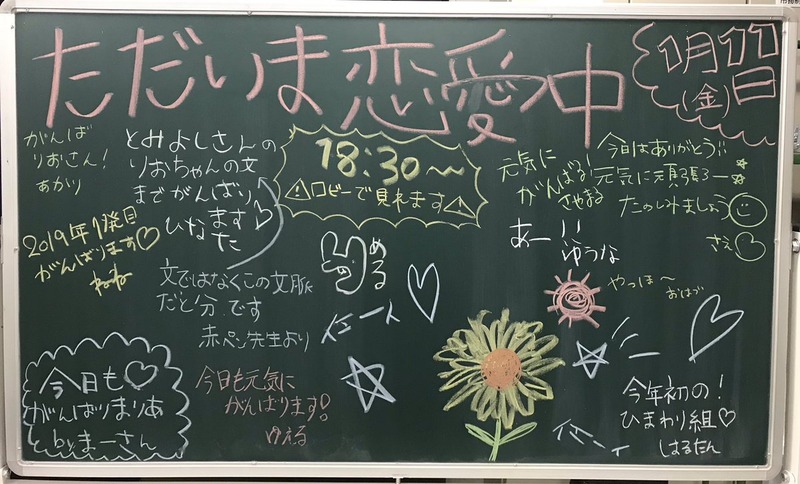 ただいま恋愛中
1月11日
(金)
がんば
りおさん！
あかり
とみよしさんの
りおちゃんの文
までがんばり
ます♡
ひなた
18:30〜
⚠ロビーで見れます⚠
元気に
がんばる！
さやまる
今日はありがとう!!
元気に頑張るー☆
たのしみましょう
さえ♡
2019年1発目
がんばります♡
ねね
める
あー!!
ゆうな
文ではなくこの文脈
だと分です
赤ペン先生より
イェーイ
やっほ〜
おはづ
今日も♡
がんばりまりあ
byまーさん
今日も元気に
がんばります！
ゆえる
イェーイ
今年初の！
ひまわり組♡
はるたん